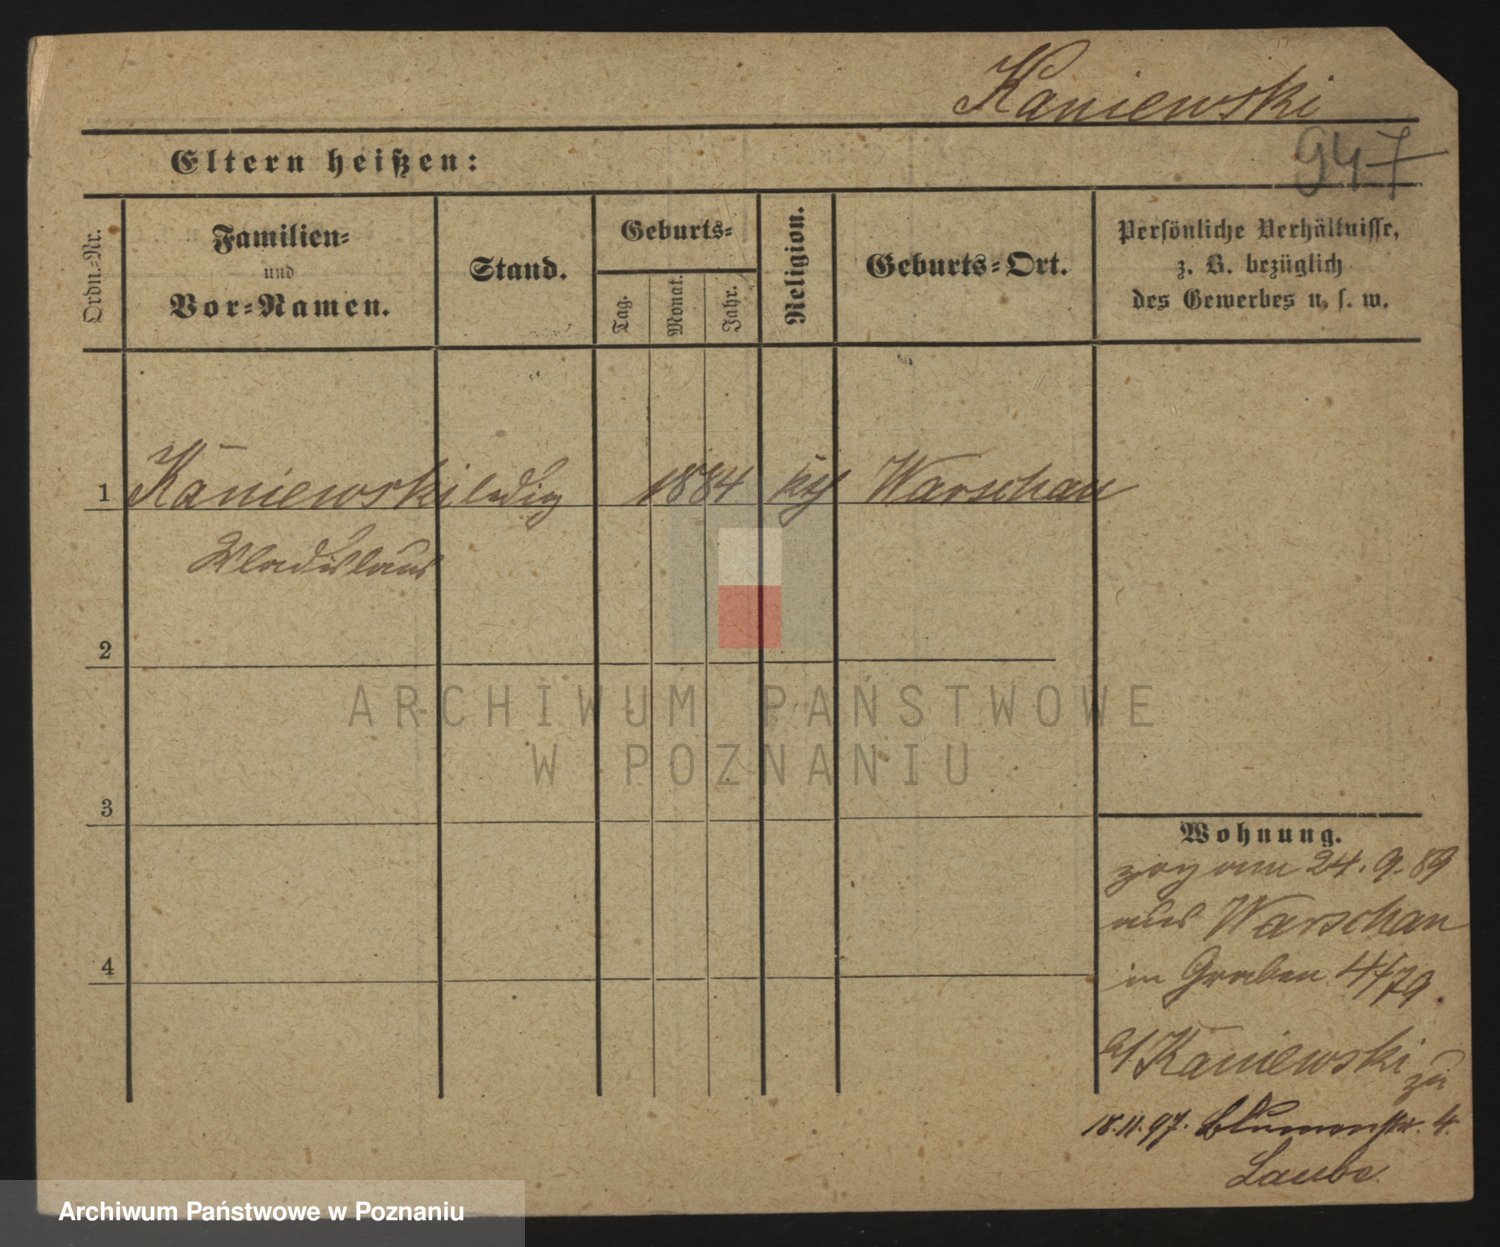 Kaniewski
947
Eltern heißen:
Ordn.-Nr.
Familien-
und
Vor-Namen.
Stand.
Geburts-
Tag.
Monat.
Jahr.
Religion.
Geburts-Ort.
Persönliche Verhältnisse,
z. B. bezüglich
des Gewerbes u. s. w.
1 Kaniewski ledig 1884 Warschau
Wladislaus
2
3
4
Wohnung.
zog am 24. 9. 89
aus Warschau
in Graben 4/79.
Kaniewski zu
18.11.97. Blumenstr. 4.
Laube
ARCHIWUM PAŃSTWOWE
W POZNANIU
Archiwum Państwowe w Poznaniu